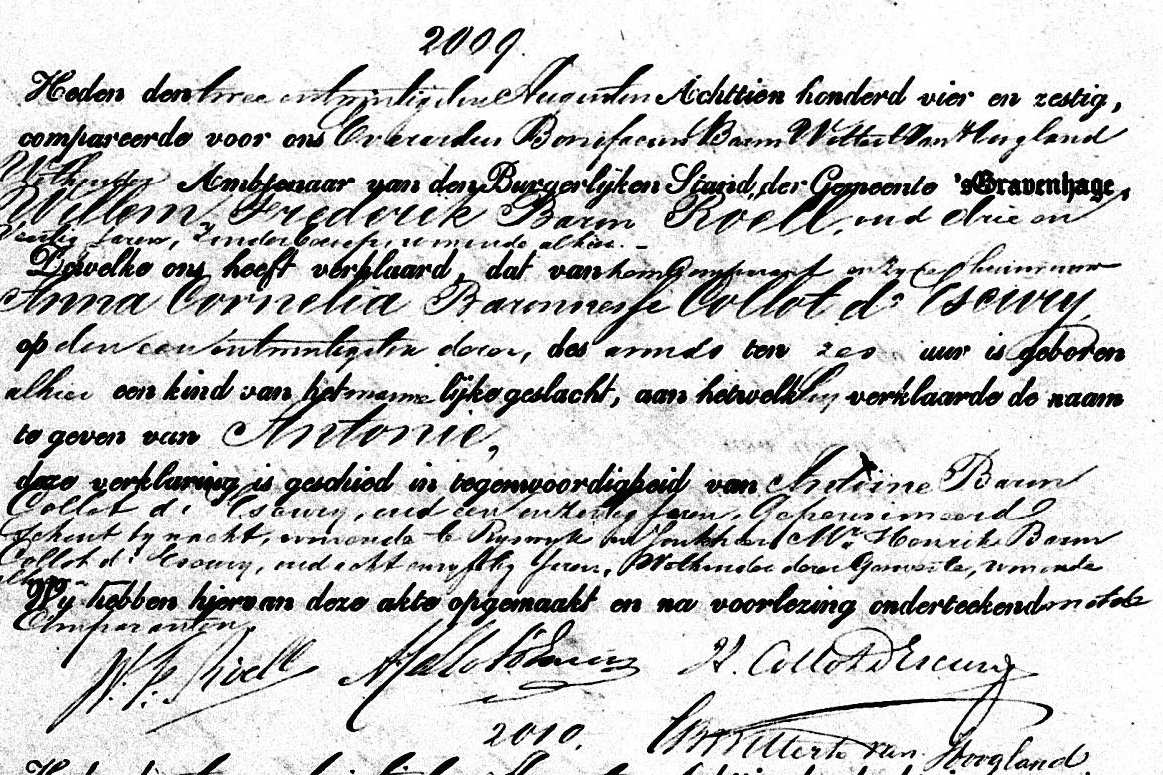 2009.
Heden den twee en twintigsten Augustus Achttien honderd vier en zestig,
compareerde voor ons Everardus Bonifacius Baron Wittert Van Hoogland
Wethouder Ambtenaar van den Burgerlijken Stand der Gemeente 'sGravenhage,
Willem Frederik Baron Röell, oud drie en
veertig Jaren, zonder beroep, wonende alhier.
Dewelke ons heeft verklaard, dat van hem Comparant en zyne huisvrouw
Anna Cornelia Baronnesse Collot d' Escury
op den een en twintigsten dezer, des avonds ten zes uur is geboren
alhier een kind van het mannelijke geslacht, aan hetwelk hij verklaarde de naam
te geven van Antonie,
deze verklaring is geschied in tegenwoordigheid van Antoine Baron
Collot d' Escury, oud een en zestig Jaren, Gepensioneerd
Schout by nacht, wonende te Ryswyk en Jonkheer Mr. Henrik Baron
Collot d' Escury, oud acht en vyftig Jaren, Wethouder dezer Gemeente, wonende
alhier
Wij hebben hiervan deze akte opgemaakt en na voorlezing onderteekend met de
Comparanten.
W. F. Röell A Collot d'Escury H. Collot d'Escury
2010. Wittert van Hoogland